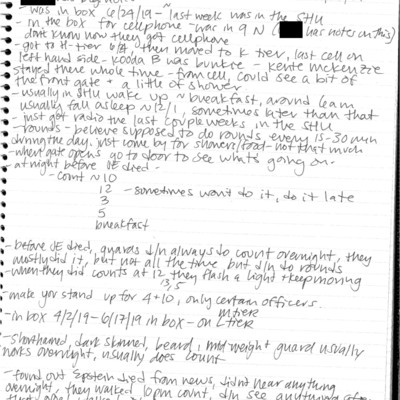 - was in box 6/24/19 - ~ last week was in the SHU
- in the box for cellphone - was in 9 N ( has notes on this)
don't know how they got cellphone
- got to H-tier 8/4, then moved to K tier, last cell on
left hand side - Kooda B was bunkie - Kente McKenzie
stayed there whole time - from cell, could see a bit of
the front gate + a little of shower
- usually in SHU wake up ~ breakfast, around 6am
usually fall asleep ~12/1, sometimes later than that
- just got radio the last couple weeks in the SHU
- rounds - believe supposed to do rounds every 15-30 min
during the day. just come by for showers/food - not that much
- when gate opens go to door to see what's going on -
- at night before JE died -
- count ~ 10
12 - sometimes won't do it, do it late
3
5
breakfast
- before JE died, guards d/n always do count overnight, they
mostly did it, but not all the time but d/n do rounds
- when they did counts at 12, they flash a light + keep moving
3, 5
- make you stand up for 4 + 10, only certain officers.
- in box 4/2/19 - 6/17/19 in box - on L tier
M tier
- shorthaired, dark skinned, beard, mid weight guard usually
works overnight, usually does count
- found out Epstein died from news, didn't hear anything
overnight, they walked 10pm count, d/n see anything after